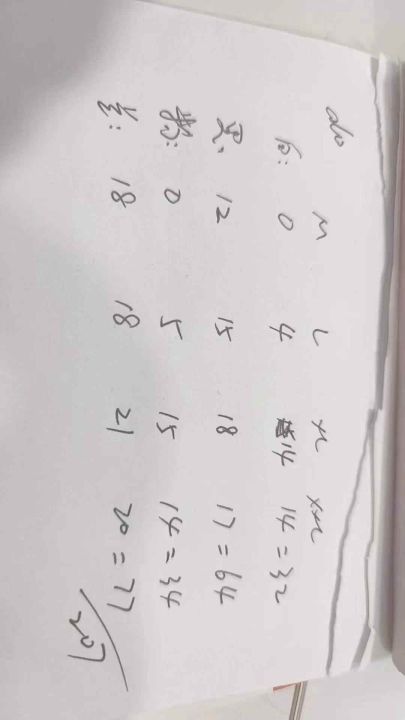 M L XL XXL
白: 0 4 14 14=32
黑: 12 15 18 17=64
0 5 15 14=34
兰: 18 18 21 20=77
207